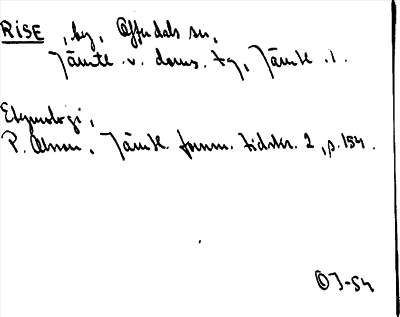 RISE, by, Offerdals sn,
Jämtl. v. doms. tg, Jämtl. l.
Etymologi,
P. Olsson, Jämtl. fornm. tidskr. 2, s. 154.
OJ-54